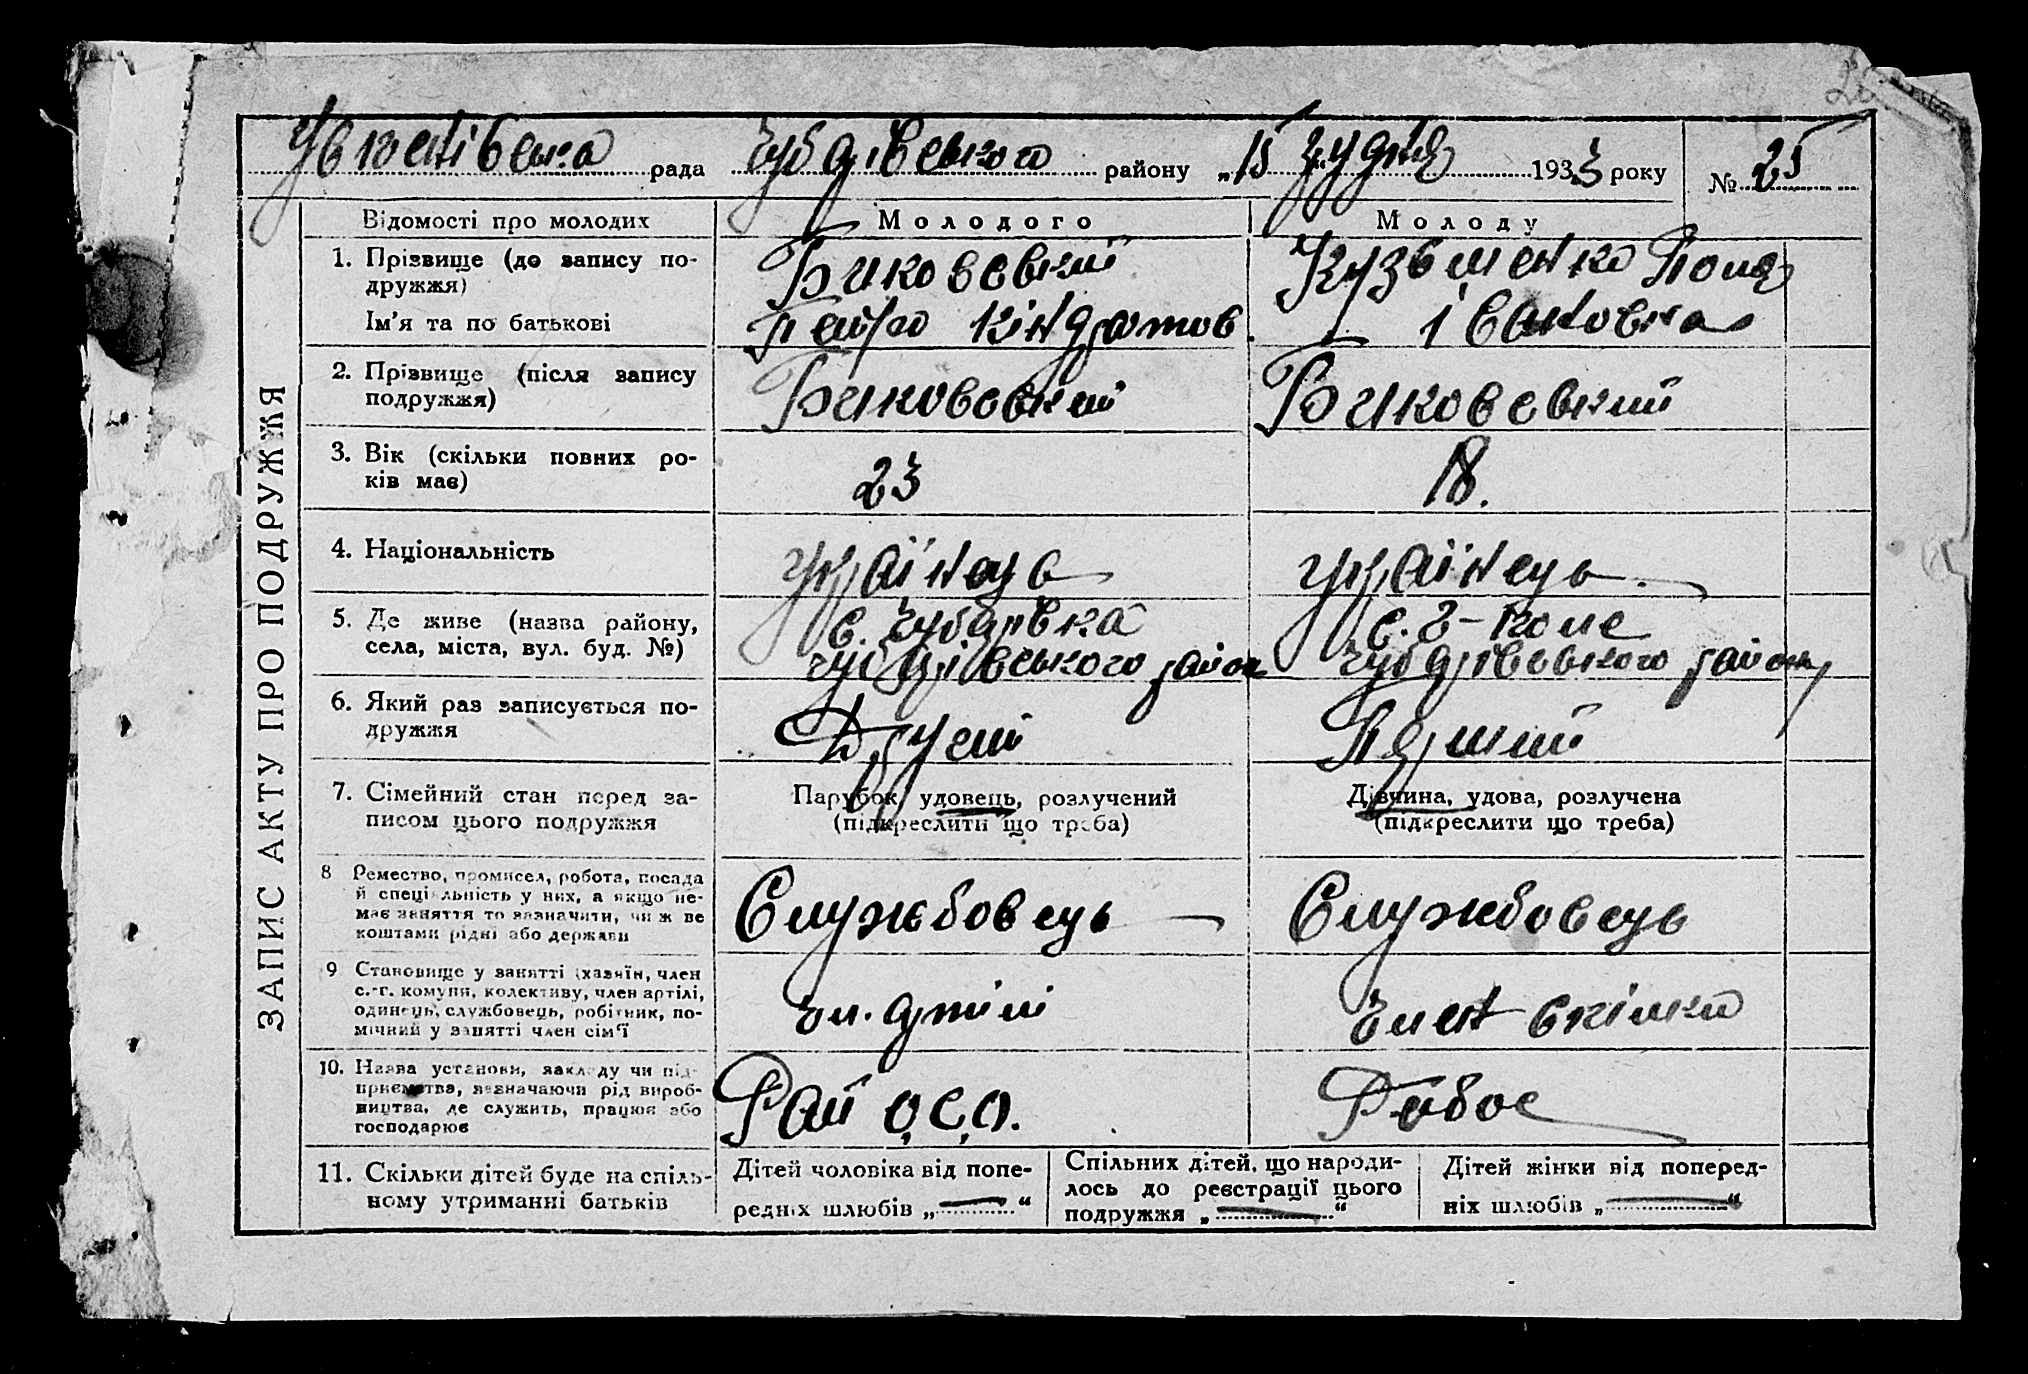 рада Чубарівського району „15 грудня 1933 року № 25
ЗАПИС АКТУ ПРО ПОДРУЖЖЯ
Відомості про молодих Молодого Молоду
1. Прізвище (до запису по-
дружжя)
Ім’я та по батькові
Биковський
Петро Кіндратов
Кузьменко Поля
Івановна
2. Прізвище (після запису
подружжя)
Биковський
Биковський
3. Вік (скільки повних ро-
ків має)
23
18.
4. Національність
українець
українець
5. Де живе (назва району,
села, міста, вул. буд. №)
с. Чубарівка
Чубарівського район
с. г-поле
Чубарівського району
6. Який раз записується по-
дружжя
Другий
Перший
7. Сімейний стан перед за-
писом цього подружжя
Парубок, удовець, розлучений
(підкреслити що треба)
Дівчина, удова, розлучена
(підкреслити що треба)
8 Ремество, промисел, робота, посада
й спеціяльність у них, а якщо не-
має заняття то зазначити, чи ж ве
коштами рідні або держави
Службовець
Службовець
9 Становище у занятті (хазяїн, член
с.-г. комуни, колективу, член артілі,
одинець, службовець, робітник, по-
мічний у занятті член сім’ї
чл. артілі
член спілки
10. Назва установи, закладу чи під-
приємства, зазначаючи рід вироб-
ництва, де служить, працює або
господарює
Рай О.С.О.
Робос
11. Скільки дітей буде на спіль-
ному утриманні батьків
Дітей чоловіка від попе-
редніх шлюбів „ — “
Спільних дітей, що народи-
лось до реєстрації цього
подружжя „ — “
Дітей жінки від поперед-
ніх шлюбів „ — “